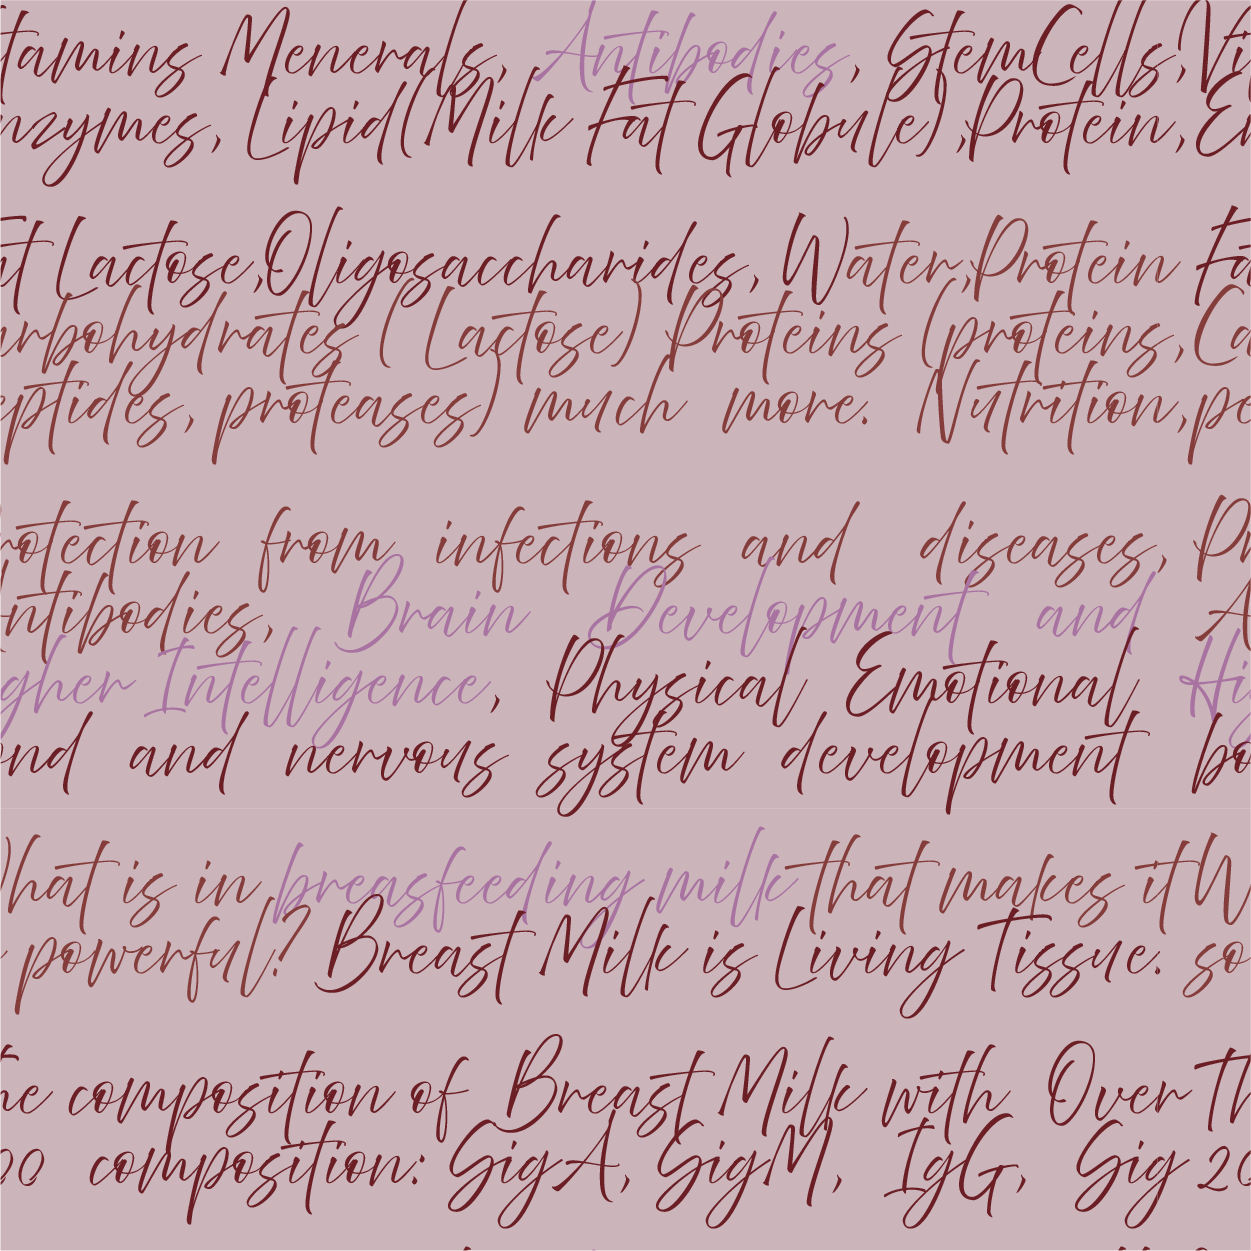 tamins Menerals, Antibodies, StemCells,Vi
nzymes, Lipid(Milk Fat Globule),Protein,En
at Lactose,Oligosaccharides, Water,Protein Fa
arbohydrates (Lactose) Proteins (proteins,Ca
eptides, proteases) much more. Nutrition,pe
rotection from infections and diseases, Pr
Antibodies, Brain Development and A
gher Intelligence, Physical Emotional Hi
ond and nervous system development bo
What is in breasfeeding milk that makes it W
powerful? Breast Milk is Living Tissue. so
he composition of Breast Milk with Over Th
00 composition: SigA, SigM, IgG, Sig 20